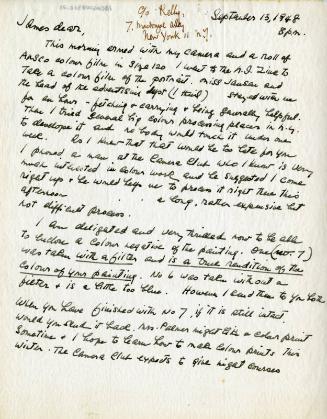 c/o Kelly,
7, Minetta Alley
New York 11 N.Y.
September 13, 1948
8 pm.
James dear,
This morning armed with my camera and a roll of
Ansco colour film in size 120 I went to the A.I. Zinc to
take a colour film of the portrait. Miss Jansen and
the head of the advertising dept (I think) stayed with me
for an hour - fetching & carrying & being generally helpful.
Then I tried several big colour processing places in N.Y.
to develope it and no body would touch it under one
week. As I knew that that would be too late for you
I phoned a man at the Camera Club who I knew is very
much interested in colour work and he suggested I come
right up & he would help me to process it right then this
afternoon a long, rather expensive but
not difficult process.
I am delighted and very thrilled now to be able
to enclose a colour negative of the painting. One (No. 7)
was taken with a filter and is a true rendition of the
colours of your painting. No 6 was taken without a
filter & is a little too blue. However I send them to you both
When you have finished with No 7, if it is still intact
would you send it back. Mrs. Palmer might like a colour print
sometime & I hope to learn how to make colour prints this
winter. The Camera Club expects to give night courses